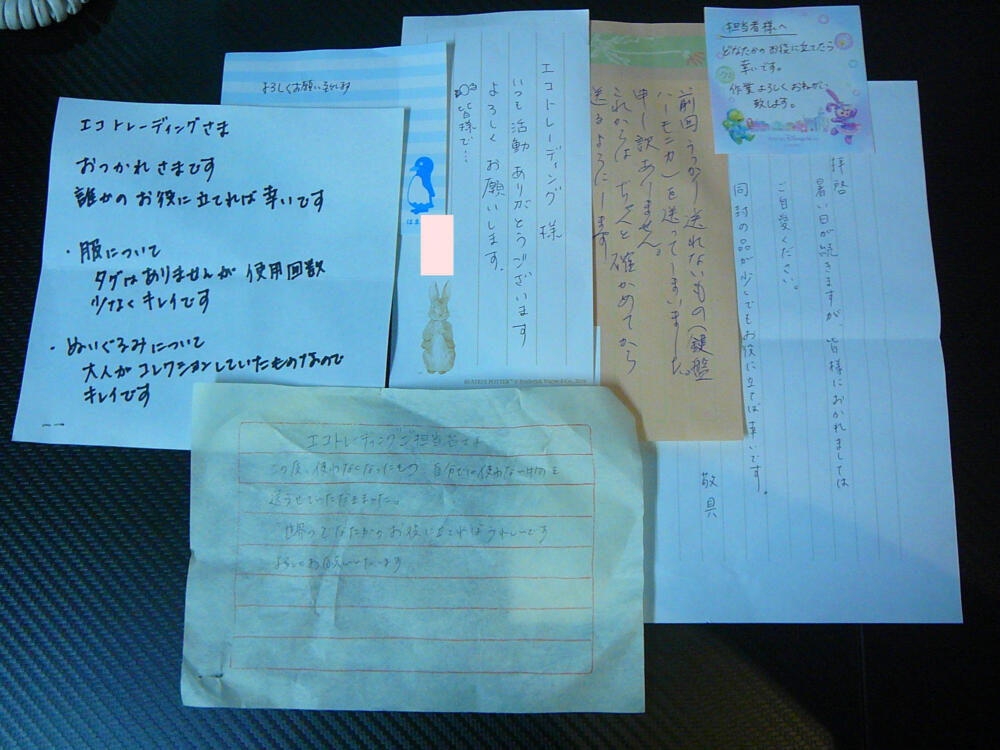 エコトレーディングさま
おつかれさまです
誰かのお役に立てれば幸いです
・服について
タグはありませんが使用回数
少なくキレイです
・ぬいぐるみについて
大人がコレクションしていたものなので
キレイです
よろしくお願い致します
エコトレーディング様
いつも活動ありがとうございます
よろしくお願いします。
皆様で…
BEATRIX POTTER
前回うっかり送れないもの(鍵盤
ハーモニカ)を送ってしまいました。
申し訳ありません。
これからはちゃんと確かめてから
送るようにします
担当者様へ
どなたかのお役に立てたら
幸いです。
作業よろしくおねがい
致します。
拝啓
暑い日が続きますが、皆様におかれましては
ご自愛ください。
同封の品が少しでもお役に立てば幸いです。
敬具
エコトレーディングご担当者さま
この度、使わなくなったもの 自分では使わない物を
送らせていただきました。
世界のどなたかのお役に立てればうれしいです
よろしくお願いいたします